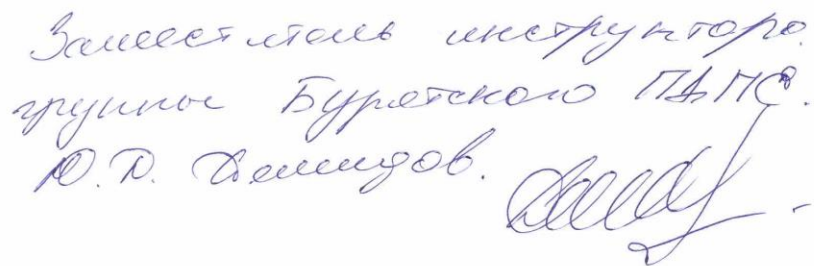 Заместитель инструктора
группы Бурятского
Ю.D. Демидов.